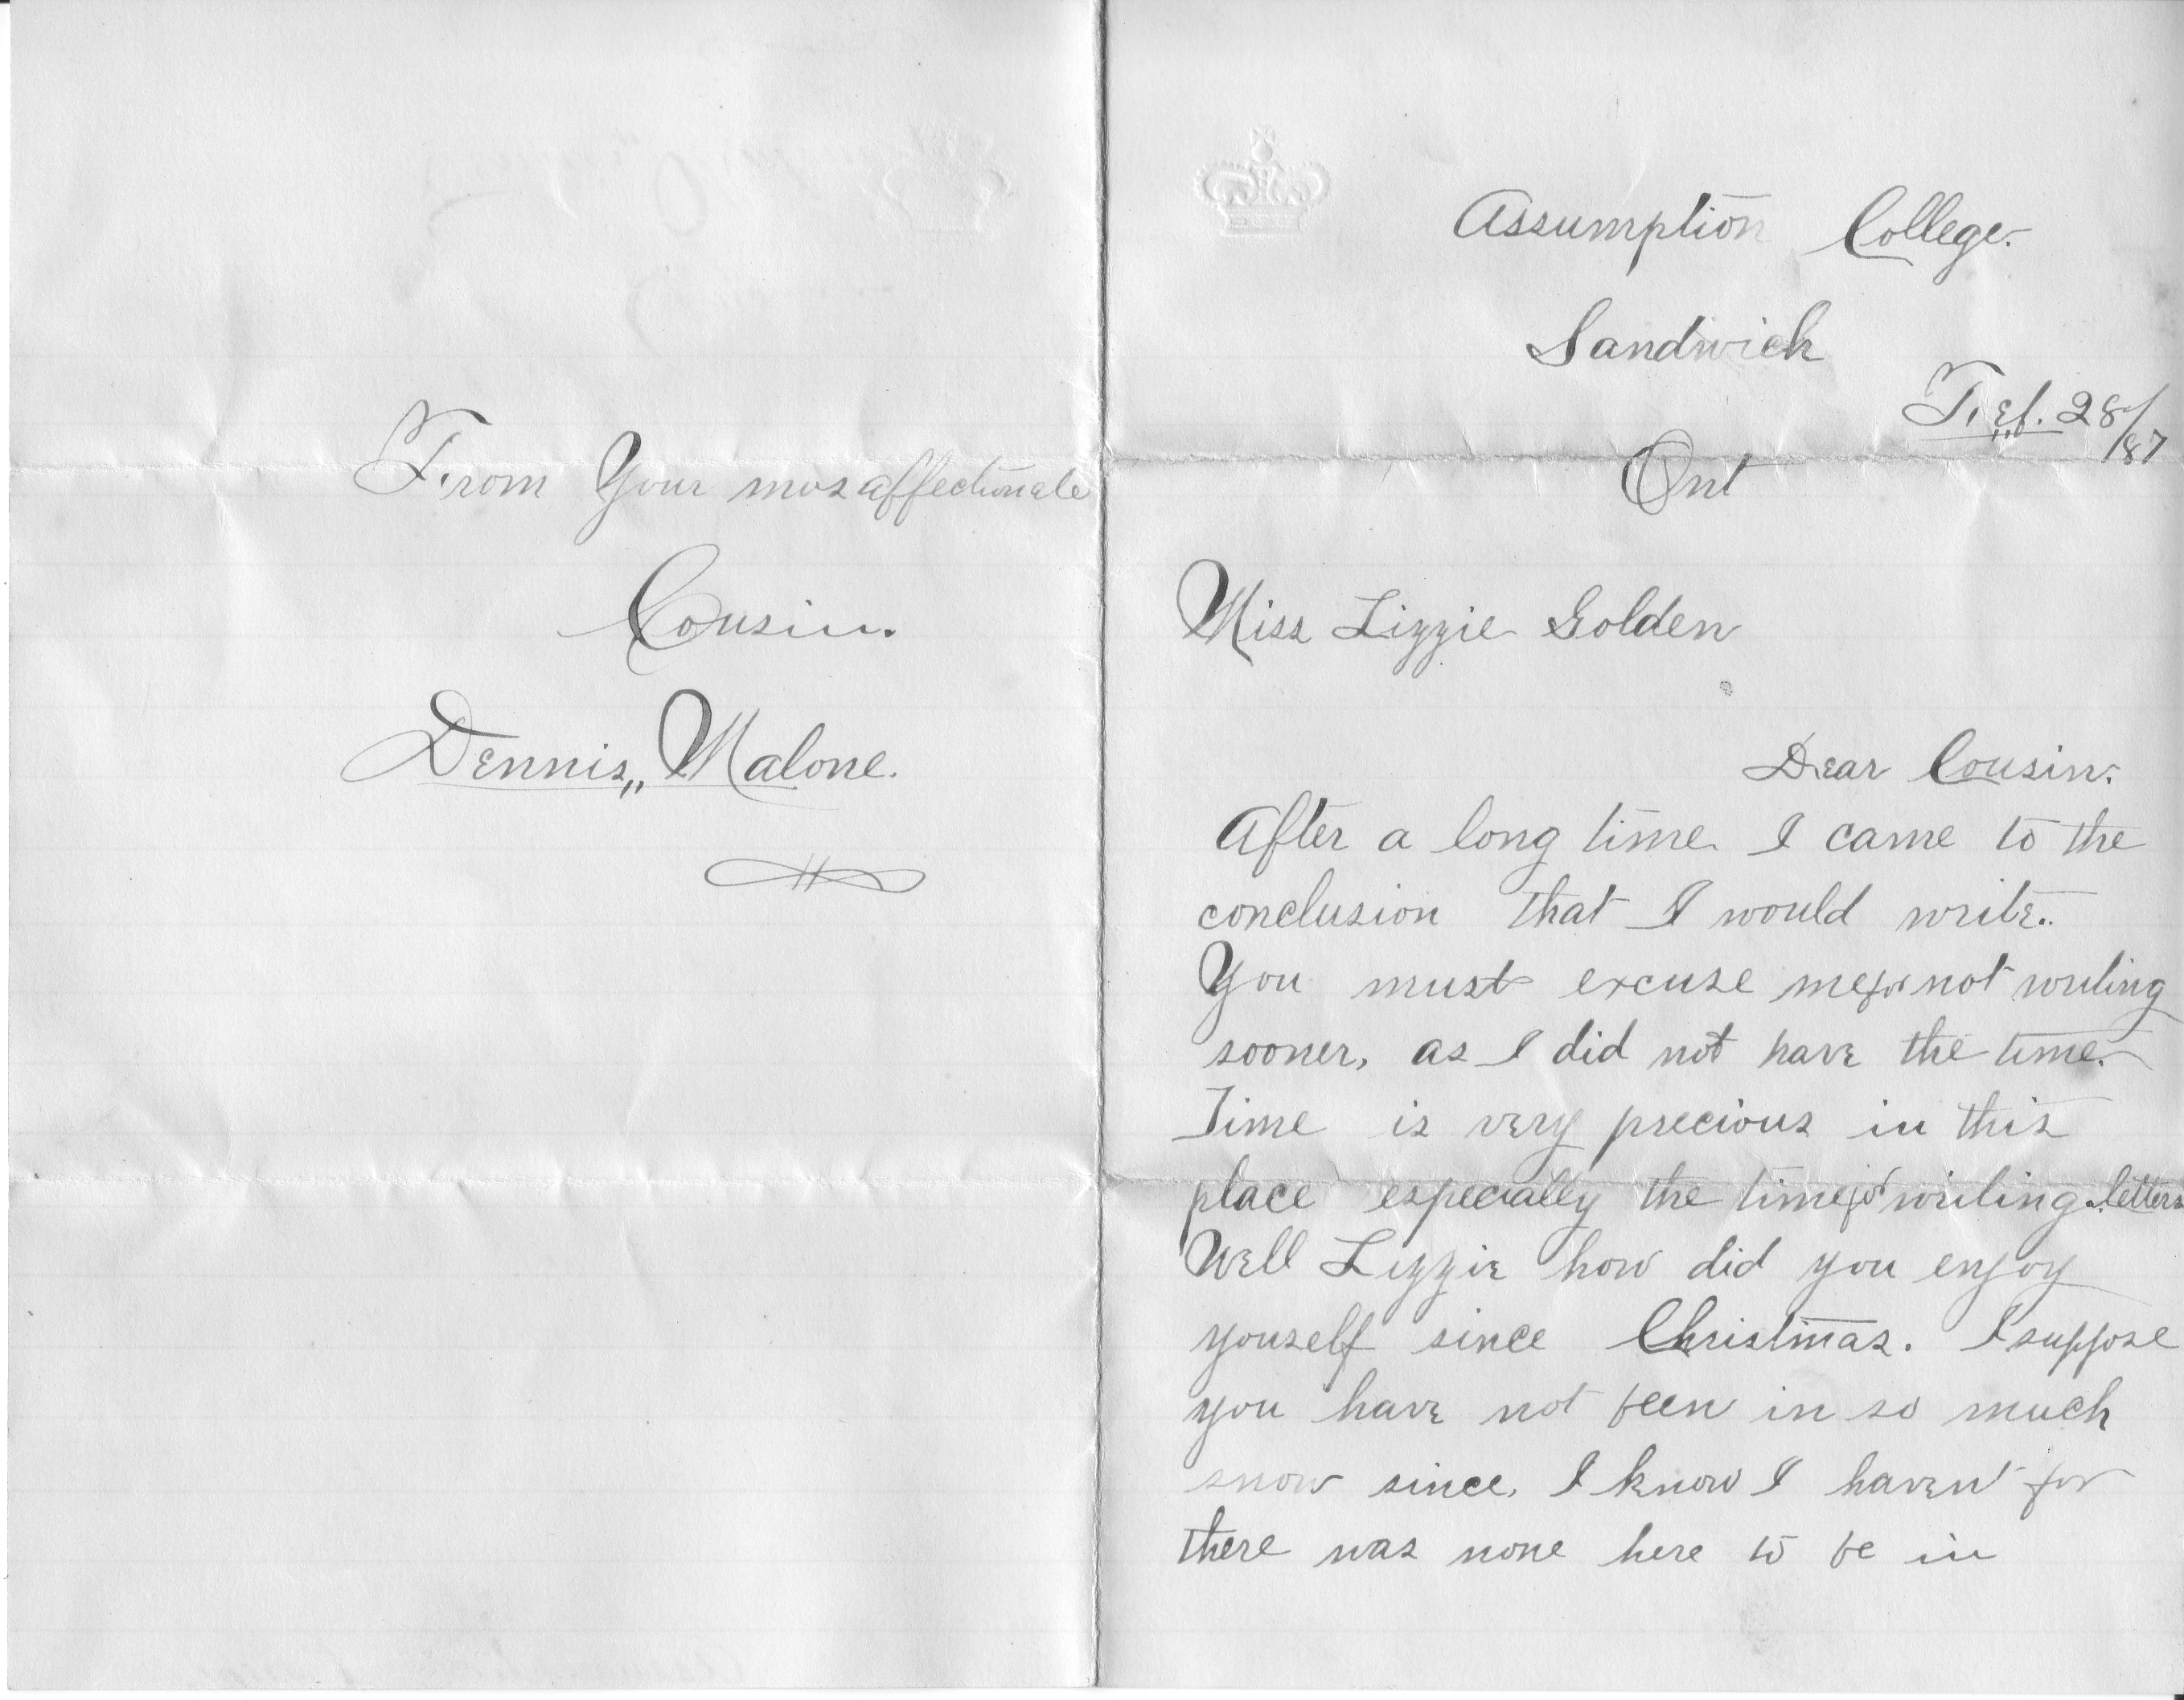 Assumption College.
Sandwich
Feb. 28/87
Ont
Miss Lizzie Golden
Dear Cousin.
After a long time I came to the
conclusion that I would write.
You must excuse me for not writing
sooner, as I did not have the time.
Time is very precious in this
place especially the time for writing letters
Well Lizzie how did you enjoy
youself since Christmas. I suppose
you have not been in so much
snow since. I know I haven't for
there was none here to be in
From Your mos affectionate
Cousin.
Dennis,, Malone.